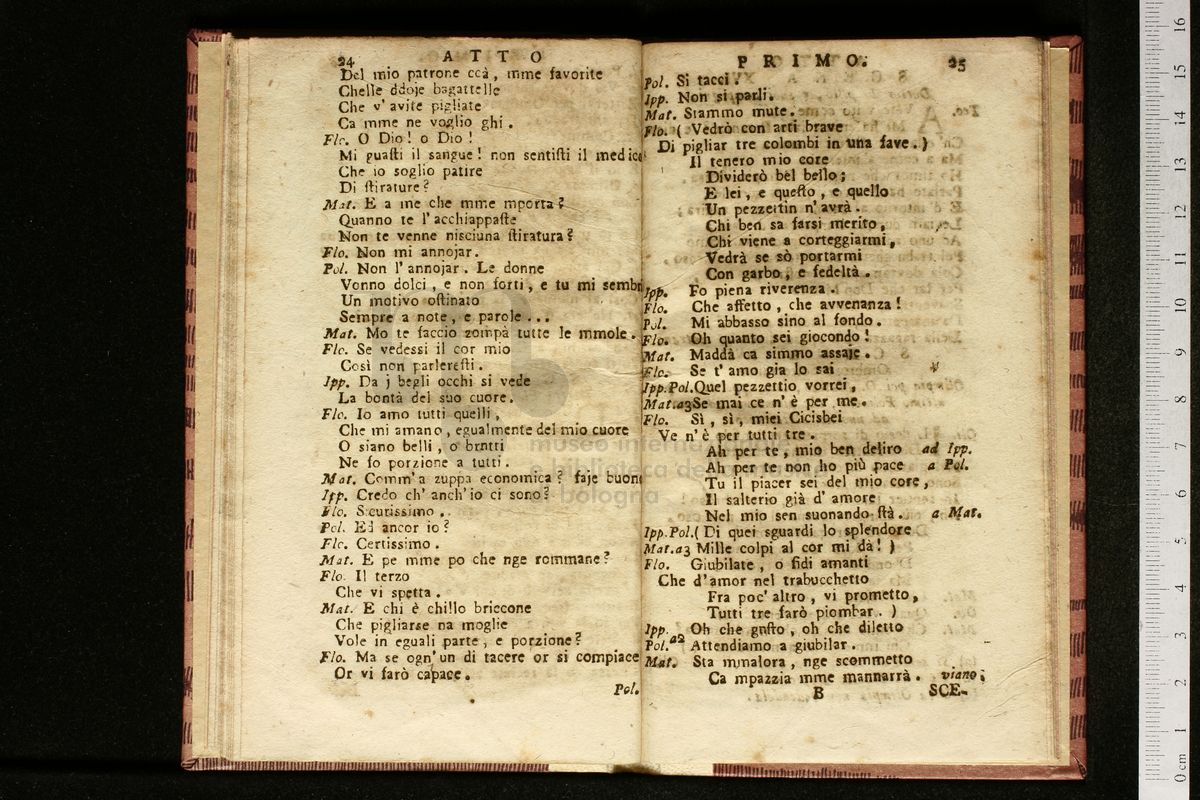 24 ATTO
Del mio patrone ccà, mme favorite
Chelle ddoje bagattelle
Che v' avite pigliate
Ca mme ne voglio ghi.
Flo. O Dio! o Dio!
Mi guaſti il sangue! non sentiſti il medico
Che io soglio patire
Di ſtirature?
Mat. E a me che mme mporta?
Quanno te l' acchiappaſte
Non te venne nisciuna ſtiratura?
Flo. Non mi annojar.
Pol. Non l' annojar. Le donne
Vonno dolci, e non forti, e tu mi sembri
Un motivo oſtinato
Sempre a note, e parole...
Mat. Mo te faccio zompà tutte le mmole.
Flo. Se vedessi il cor mio
Così non parlereſti.
Ipp. Da j begli occhi si vede
La bontà del suo cuore.
Flo. Io amo tutti quelli,
Che mi amano, egualmente del mio cuore
O siano belli, o brntti
Ne fo porzione a tutti.
Mat. Comm' a zuppa economica? faje buono
Ipp. Credo ch' anch' io ci sono?
Flo. Sicurissimo.
Pol. Ed ancor io?
Flo. Certissimo.
Mat. E pe mme po che nge rommane?
Flo. Il terzo
Che vi spetta.
Mat. E chi è chillo briccone
Che pigliarse na moglie
Vole in eguali parte, e porzione?
Flo. Ma se ogn' un di tacere or si compiace
Or vi farò capace.
Pol.
PRIMO. 25
Pol. Si tacci.
Ipp. Non si parli.
Mat. Stammo mute.
Flo. (Vedrò con arti brave
Di pigliar tre colombi in una fave.)
Il tenero mio core
Dividerò bel bello;
E lei, e queſto, e quello
Un pezzettin n' avrà.
Chi ben sa farsi merito,
Chi viene a corteggiarmi,
Vedrà se sò portarmi
Con garbo, e fedeltà.
Ipp. Fo piena riverenza.
Flo. Che affetto, che avvenanza!
Pol. Mi abbasso sino al fondo.
Flo. Oh quanto sei giocondo!
Mat. Maddà ca simmo assaje.
Flo. Se t' amo gia lo sai
Ipp. Pol. Quel pezzettio vorrei,
Mat. a3 Se mai ce n' è per me.
Flo. Sì, sì, miei Cicisbei
Ve n' è per tutti tre.
Ah per te, mio ben deliro ad Ipp.
Ah per te non ho più pace a Pol.
Tu il piacer sei del mio core,
Il salterio già d' amore
Nel mio sen suonando ſtà. a Mat.
Ipp. Pol. (Di quei sguardi lo splendore
Mat. a3 Mille colpi al cor mi dà!)
Flo. Giubilate, o fidi amanti
Che d' amor nel trabucchetto
Fra poc' altro, vi prometto,
Tutti tre farò piombar.)
Ipp. Oh che gnſto, oh che diletto
Pol. a2 Attendiamo a giubilar.
Mat. Sta mmalora, nge scommetto
Ca mpazzia mme mannarrà. viano;
B SCE-
museo internazionale
e biblioteca della musica
bologna
0 cm 1 2 3 4 5 6 7 8 9 10 11 12 13 14 15 16